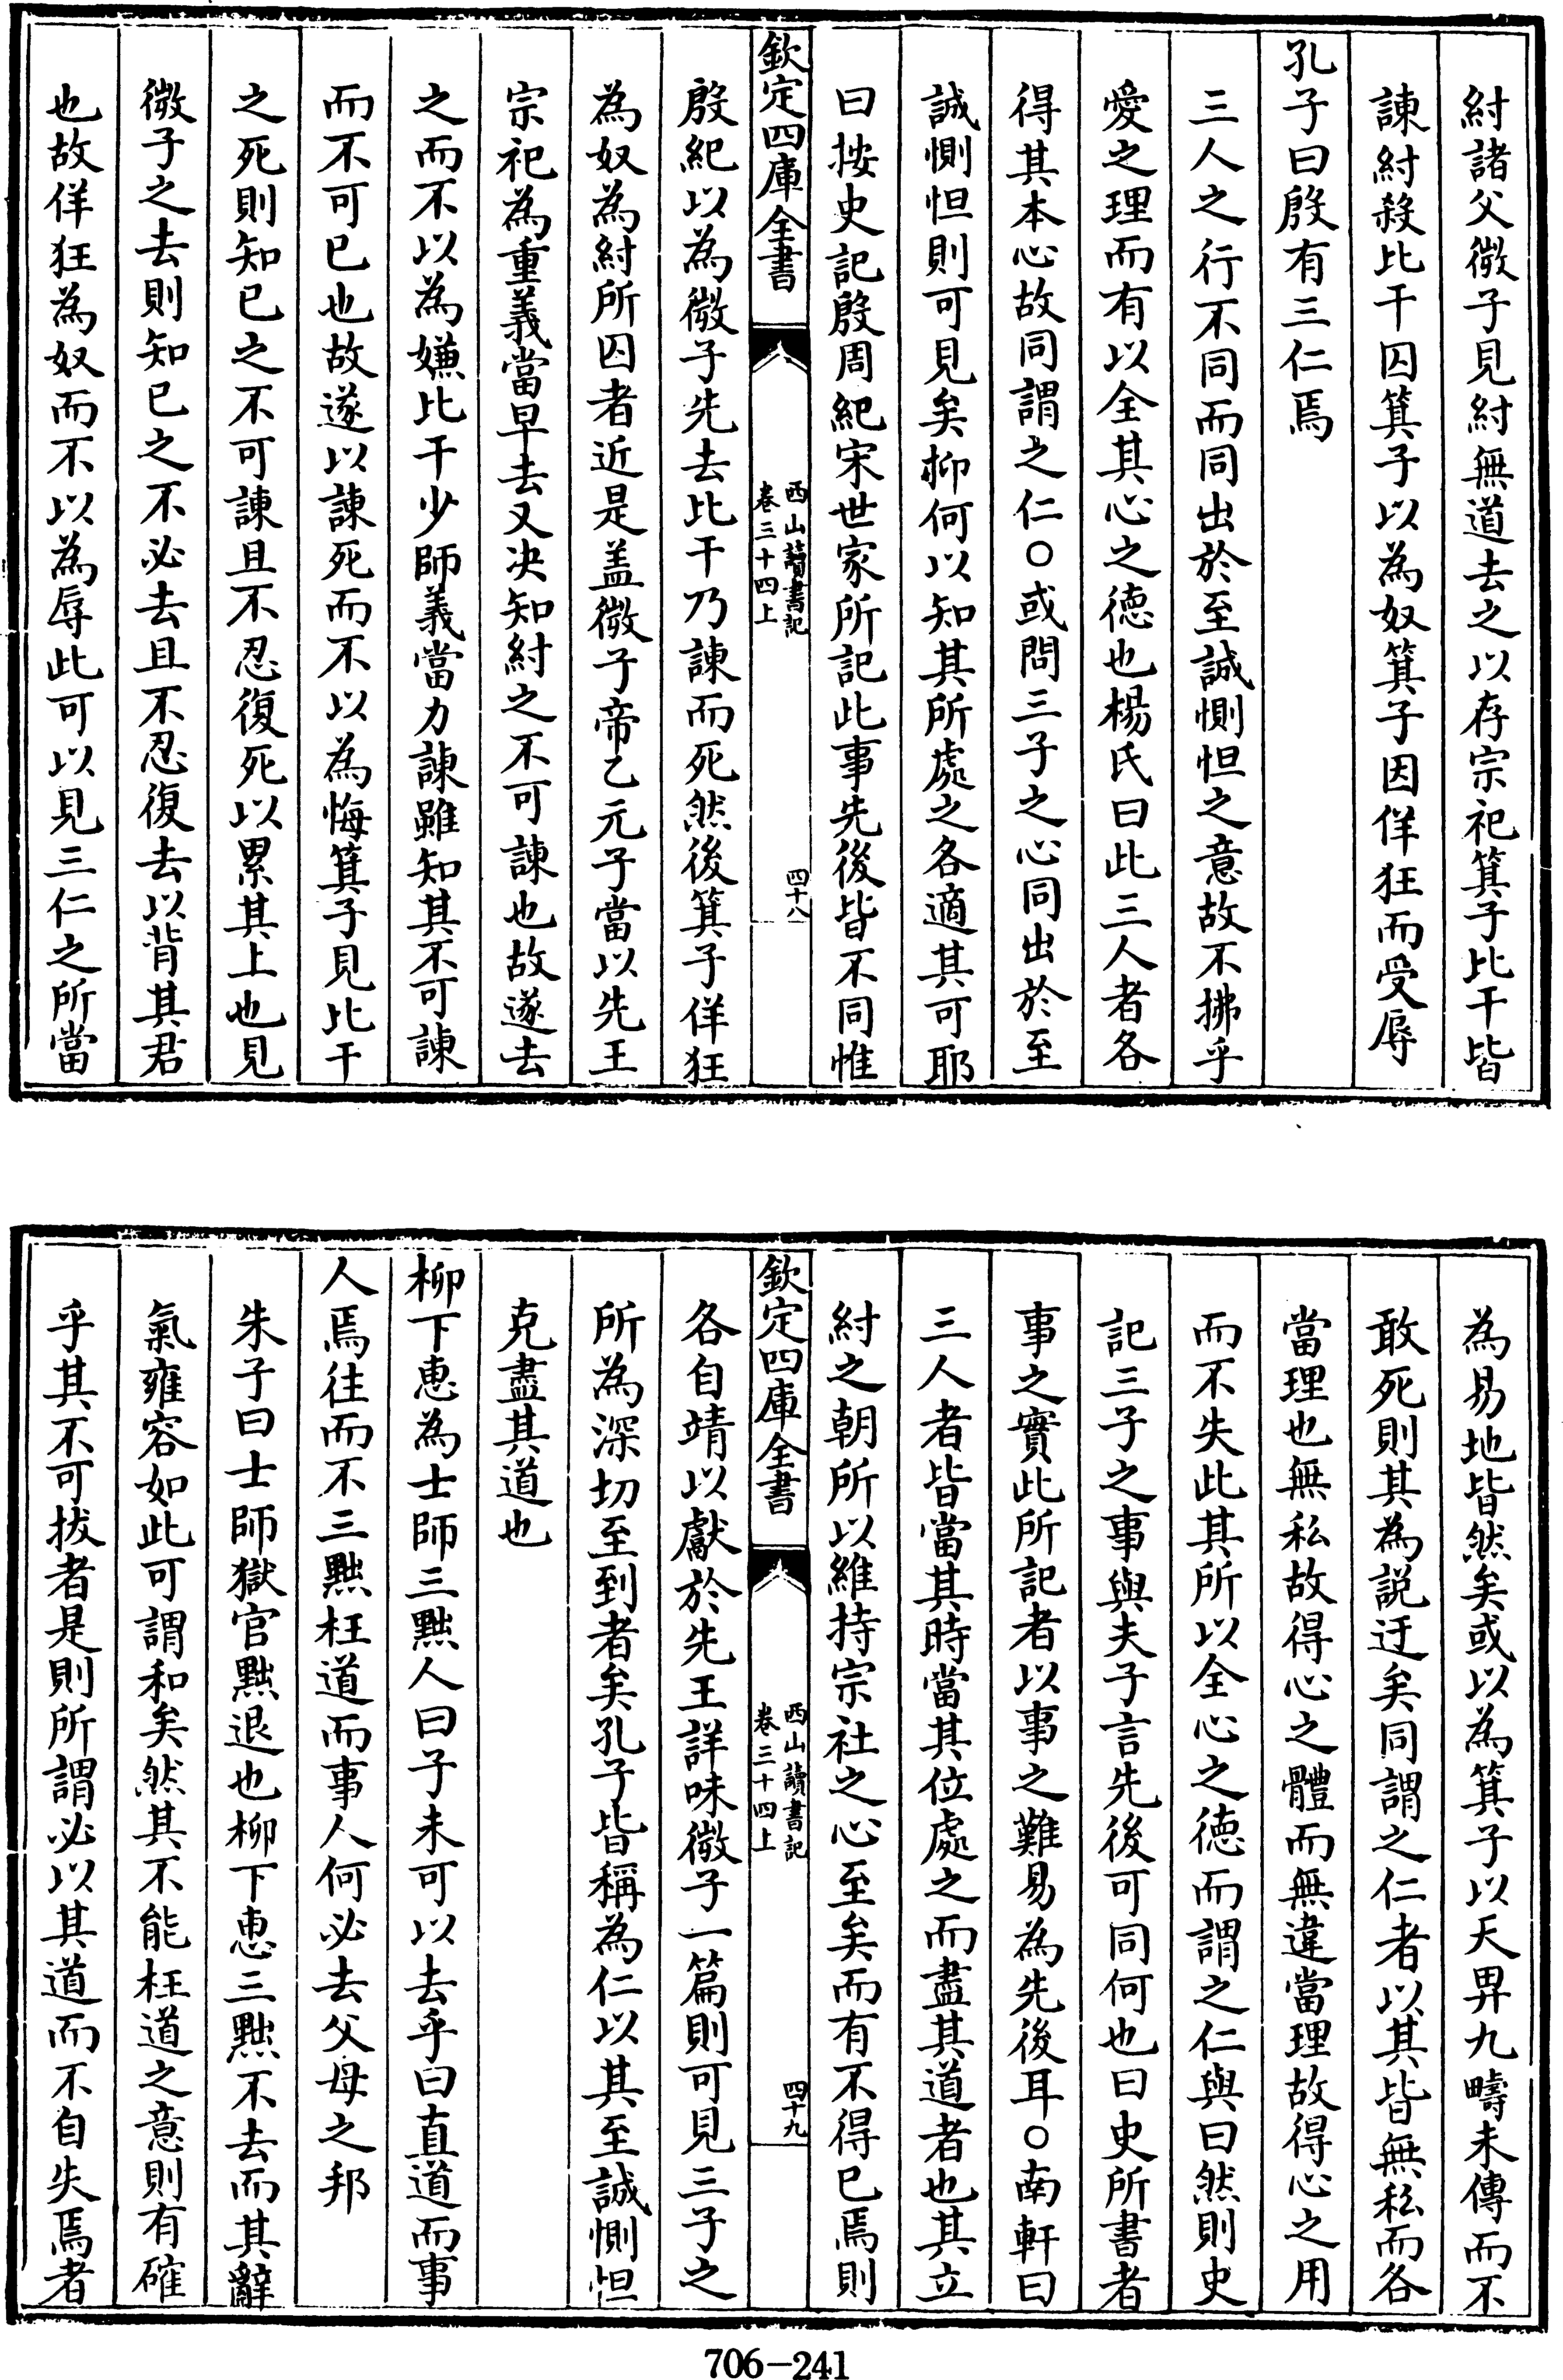 紂諸父微子見紂無道去之以存宗祀箕子比干皆
諫紂殺比干囚箕子以為奴箕子因佯狂而受辱
孔子曰殷有三仁焉
三人之行不同而同出於至誠惻怛之意故不拂乎
愛之理而有以全其心之徳也楊氏曰此三人者各
得其本心故同謂之仁○或問三子之心同出於至
誠惻怛則可見矣抑何以知其所處之各適其可耶
曰按史記殷周紀宋世家所記此事先後皆不同惟
欽定四庫全書
西山讀書記
卷三十四上
四十八
殷紀以為微子先去比干乃諫而死然後箕子佯狂
為奴為紂所囚者近是盖微子帝乙元子當以先王
宗祀為重義當早去又决知紂之不可諫也故遂去
之而不以為嫌比干少師義當力諫雖知其不可諫
而不可已也故遂以諫死而不以為悔箕子見比干
之死則知已之不可諫且不忍復死以累其上也見
微子之去則知已之不必去且不忍復去以背其君
也故佯狂為奴而不以為辱此可以見三仁之所當
為易地皆然矣或以為箕子以天畀九疇未傳而不
敢死則其為説迂矣同謂之仁者以其皆無私而各
當理也無私故得心之體而無違當理故得心之用
而不失此其所以全心之徳而謂之仁與曰然則史
記三子之事與夫子言先後可同何也曰史所書者
事之實此所記者以事之難易為先後耳○南軒曰
三人者皆當其時當其位處之而盡其道者也其立
紂之朝所以維持宗社之心至矣而有不得已焉則
欽定四庫全書
西山讀書記
卷三十四上
四十九
各自靖以獻於先王詳味微子一篇則可見三子之
所為深切至到者矣孔子皆稱為仁以其至誠惻怛
克盡其道也
柳下惠為士師三黜人曰子未可以去乎曰直道而事
人焉往而不三黜枉道而事人何必去父母之邦
朱子曰士師獄官黜退也柳下惠三黜不去而其辭
氣雍容如此可謂和矣然其不能枉道之意則有確
乎其不可拔者是則所謂必以其道而不自失焉者
706-241